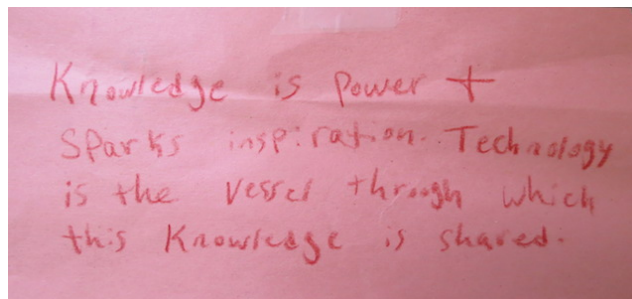 Knowledge is power +
Sparks inspiration. Technology
is the vessel through which
this Knowledge is shared.